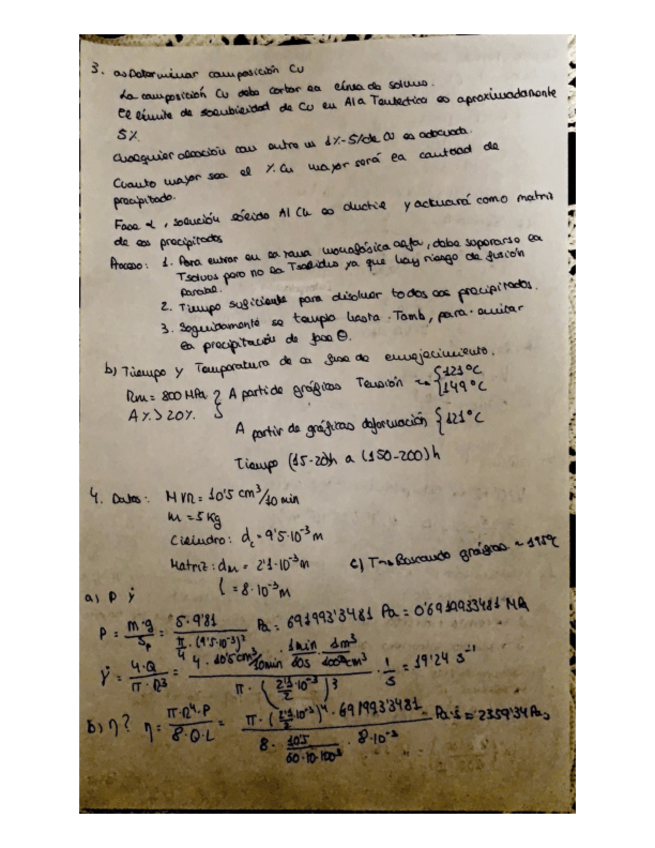 3. a) Determinar composición Cu
La composición Cu debe cortar la línea de solvus.
El límite de solubilidad de Cu en Al a Teutéctica es aproximadamente
5%
Cualquier aleación con entre un 1%-5% de Cu es adecuada.
Cuanto mayor sea el %Cu mayor será la cantidad de
precipitado.
Fase α, solución sólida Al Cu es ductil y actuará como matriz
de los precipitados
Proceso: 1. Para entrar en la zona monofásica alfa, debe superarse la
Tsolvus pero no la Tsolidus ya que hay riesgo de fusión
parcial.
2. Tiempo suficiente para disolver todos los precipitados.
3. Seguidamente se templa hasta Tamb, para evitar
la precipitación de fase Θ.
b) Tiempo y Temperatura de la fase de envejecimiento.
Rm = 800 MPa } A partir de gráficas Tensión → { 121°C
A% > 20% 149°C
A partir de gráficas deformación { 121°C
Tiempo (15-20)h a (150-200)h
4. Datos: MVR = 10'5 cm³/10 min
m = 5 Kg
Cilindro: d = 9'5·10⁻³ m
Matriz: dm = 2'1·10⁻³ m c) T → Buscando gráficas ≈
l = 8·10⁻³ m
a) P γ̇
P = m·g / Sp = 5·9'81 / π/4·(9'5·10⁻³)² Pa = 691993'3481 Pa = 0'6919933481 MPa
γ̇ = 4·Q / π·R³ = 4·10'5 cm³/10min · 1min/60s · 1m³/100³cm³ / π·(2'1·10⁻³/2)³ · 1/s = 19'24 s⁻¹
b) η? η = π·R⁴·P / 8·Q·L = π·(2'1·10⁻³/2)⁴·691993'3481 / 8·10'5/60·10·100³·8·10⁻³ Pa·s = 2359'34 Pa·s